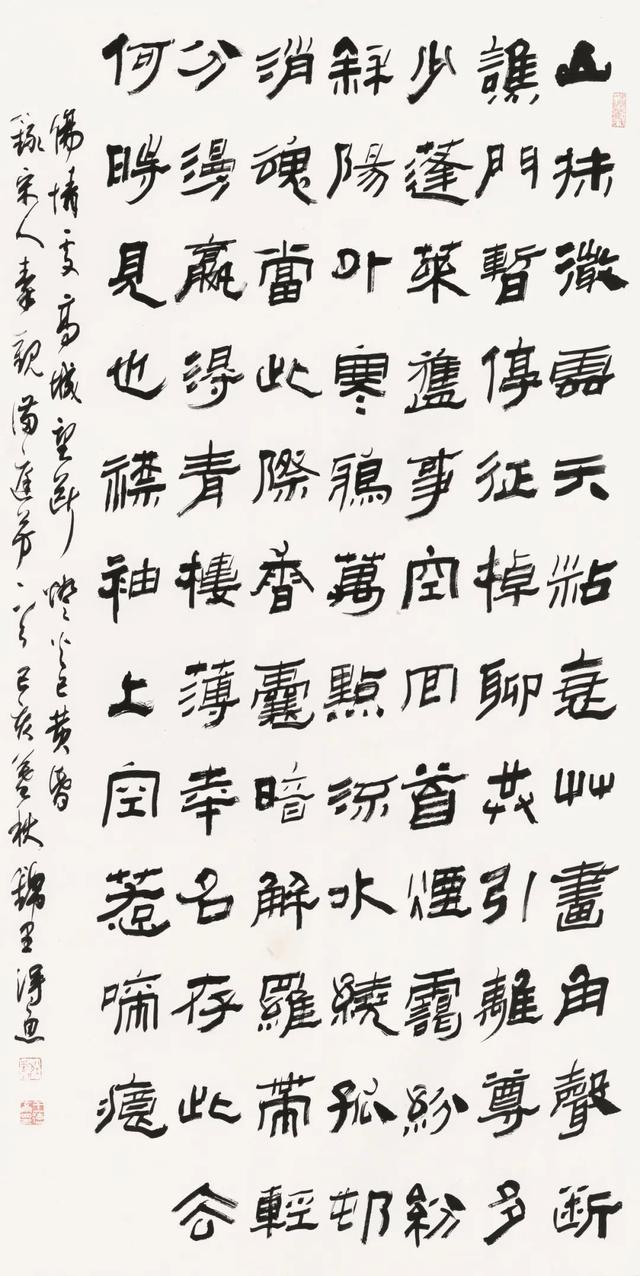 山抹微雲天粘衰艸畫角聲斷
譙門暫停征棹聊共引離尊多
少蓬萊舊事空回首煙靄紛紛
斜陽外寒鴉萬點流水繞孤邨
消魂當此際香囊暗解羅帶輕
分漫贏得青樓薄幸名存此去
何時見也襟袖上空惹啼痕
傷情處高城望斷燈火已黃昏
錄宋人秦觀滿庭芳一己亥暮秋錦里